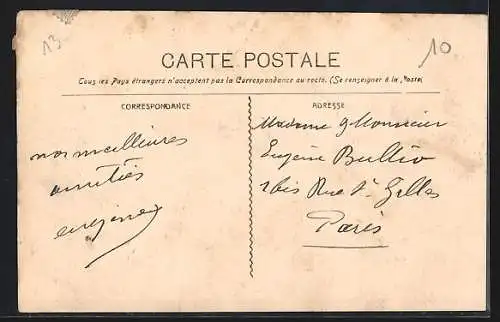 13
10
CARTE POSTALE
Tous les Pays étrangers n'acceptent pas la Correspondance au recto. (Se renseigner à la Poste)
CORRESPONDANCE
ADRESSE
nos meilleures
amitiés
Madame & Monsieur
Eugène
Rue St Gilles
Paris